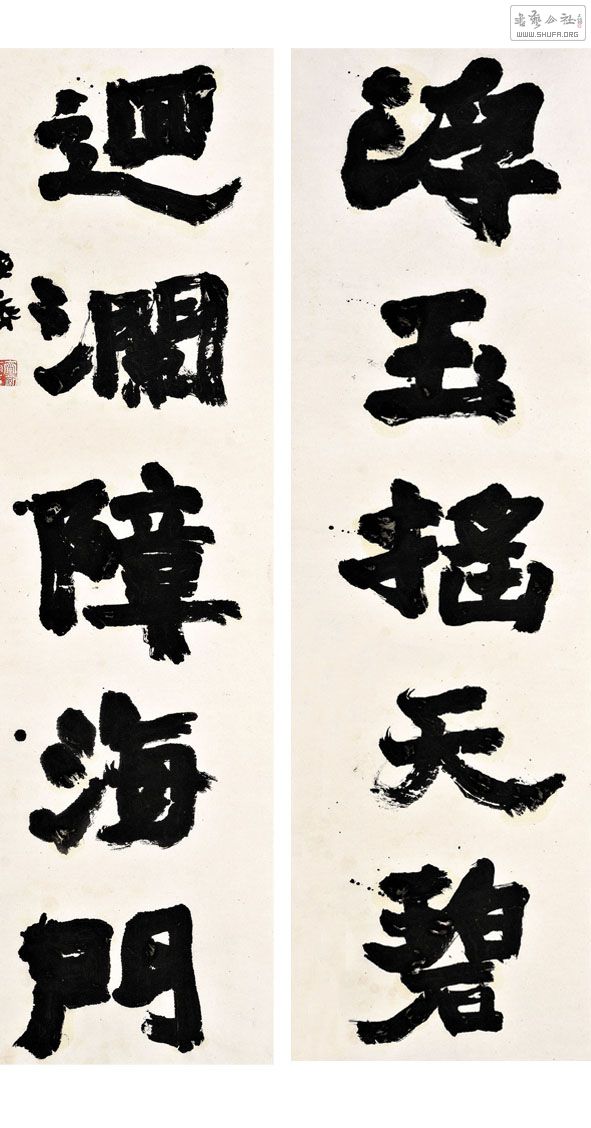 WWW.SHUFA.ORG
浮玉搖天碧
迴瀾障海門